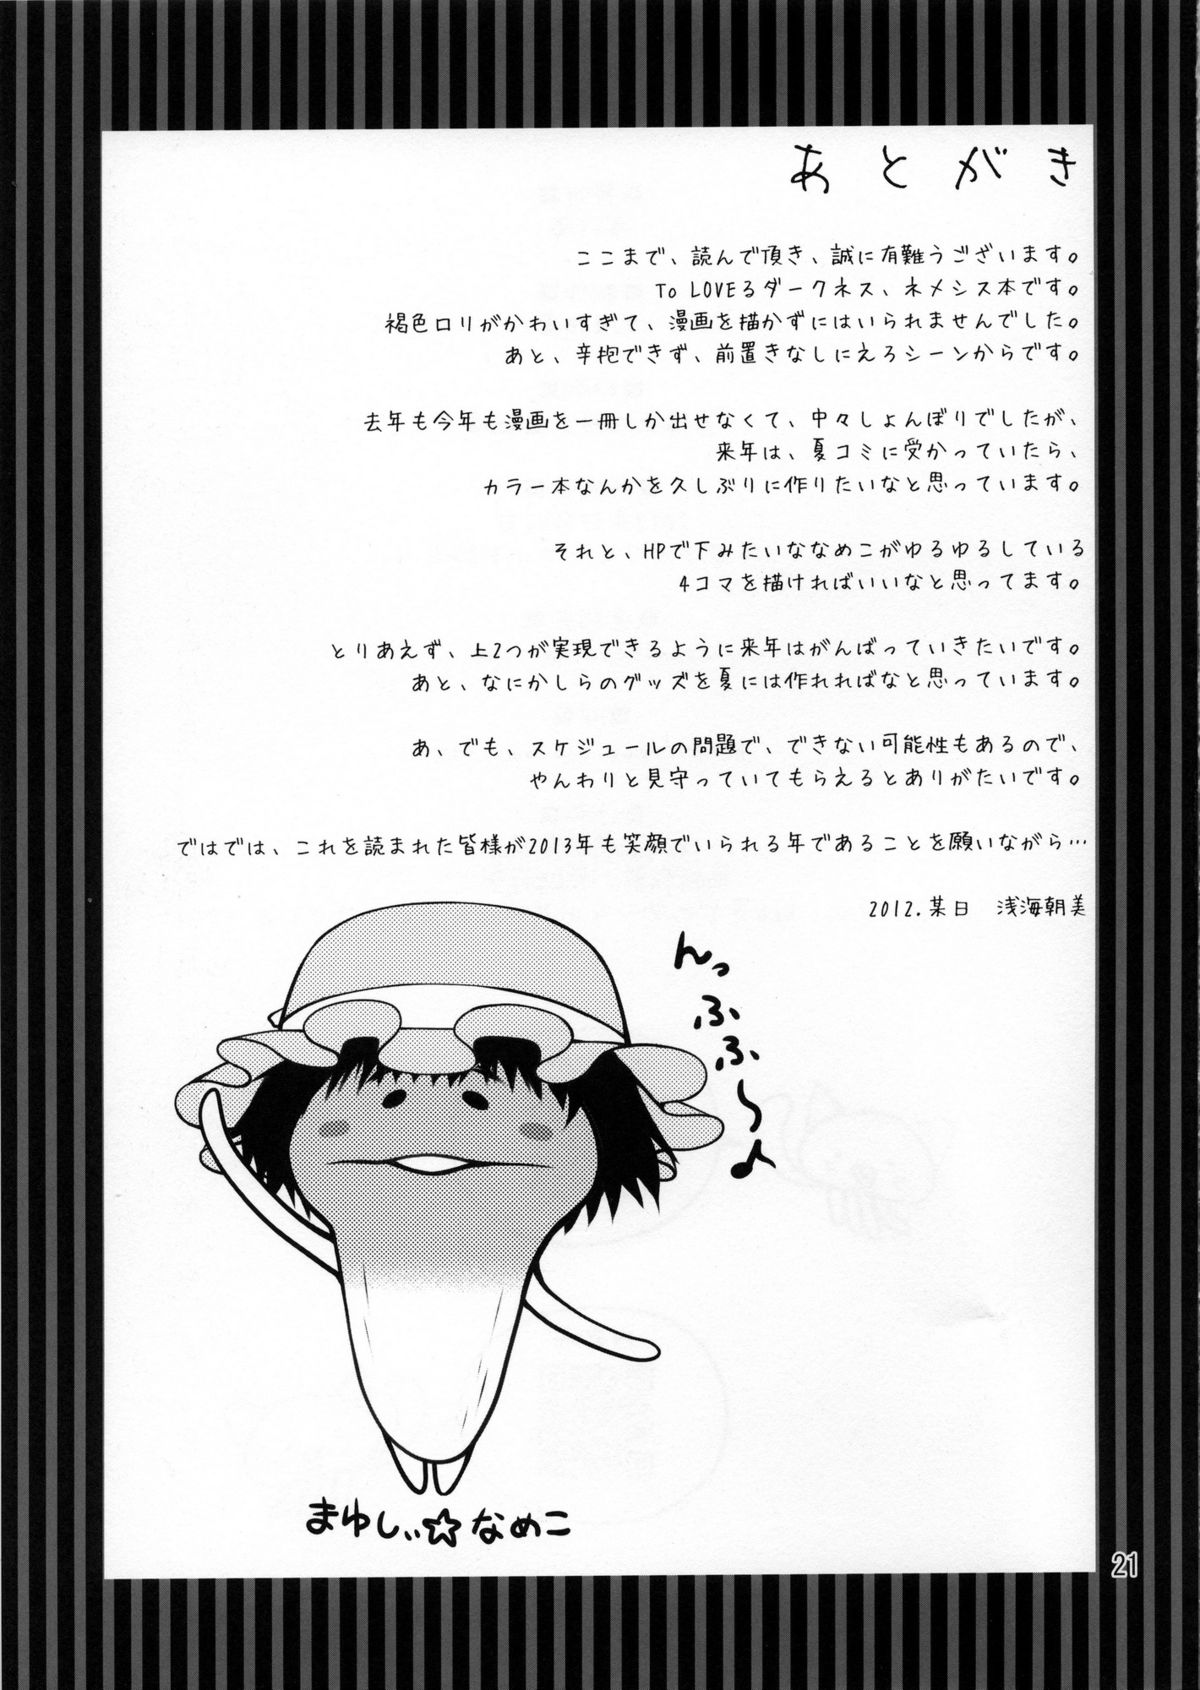 あとがき
ここまで、読んで頂き、誠に有難うございます。
To LOVEるダークネス、ネメシス本です。
褐色ロリがかわいすぎて、漫画を描かずにはいられませんでした。
あと、辛抱できず、前置きなしにえろシーンからです。
去年も今年も漫画を一冊しか出せなくて、中々しょんぼりでしたが、
来年は、夏コミに受かっていたら、
カラー本なんかを久しぶりに作りたいなと思っています。
それと、HPで下みたいななめこがゆるゆるしている
4コマを描ければいいなと思ってます。
とりあえず、上2つが実現できるように来年はがんばっていきたいです。
あと、なにかしらのグッズを夏には作れればなと思っています。
あ、でも、スケジュールの問題で、できない可能性もあるので、
やんわりと見守っていてもらえるとありがたいです。
ではでは、これを読まれた皆様が2013年も笑顔でいられる年であることを願いながら…
2012.某日　浅海朝美
んっふふ〜♪
まゆしぃ☆なめこ
21